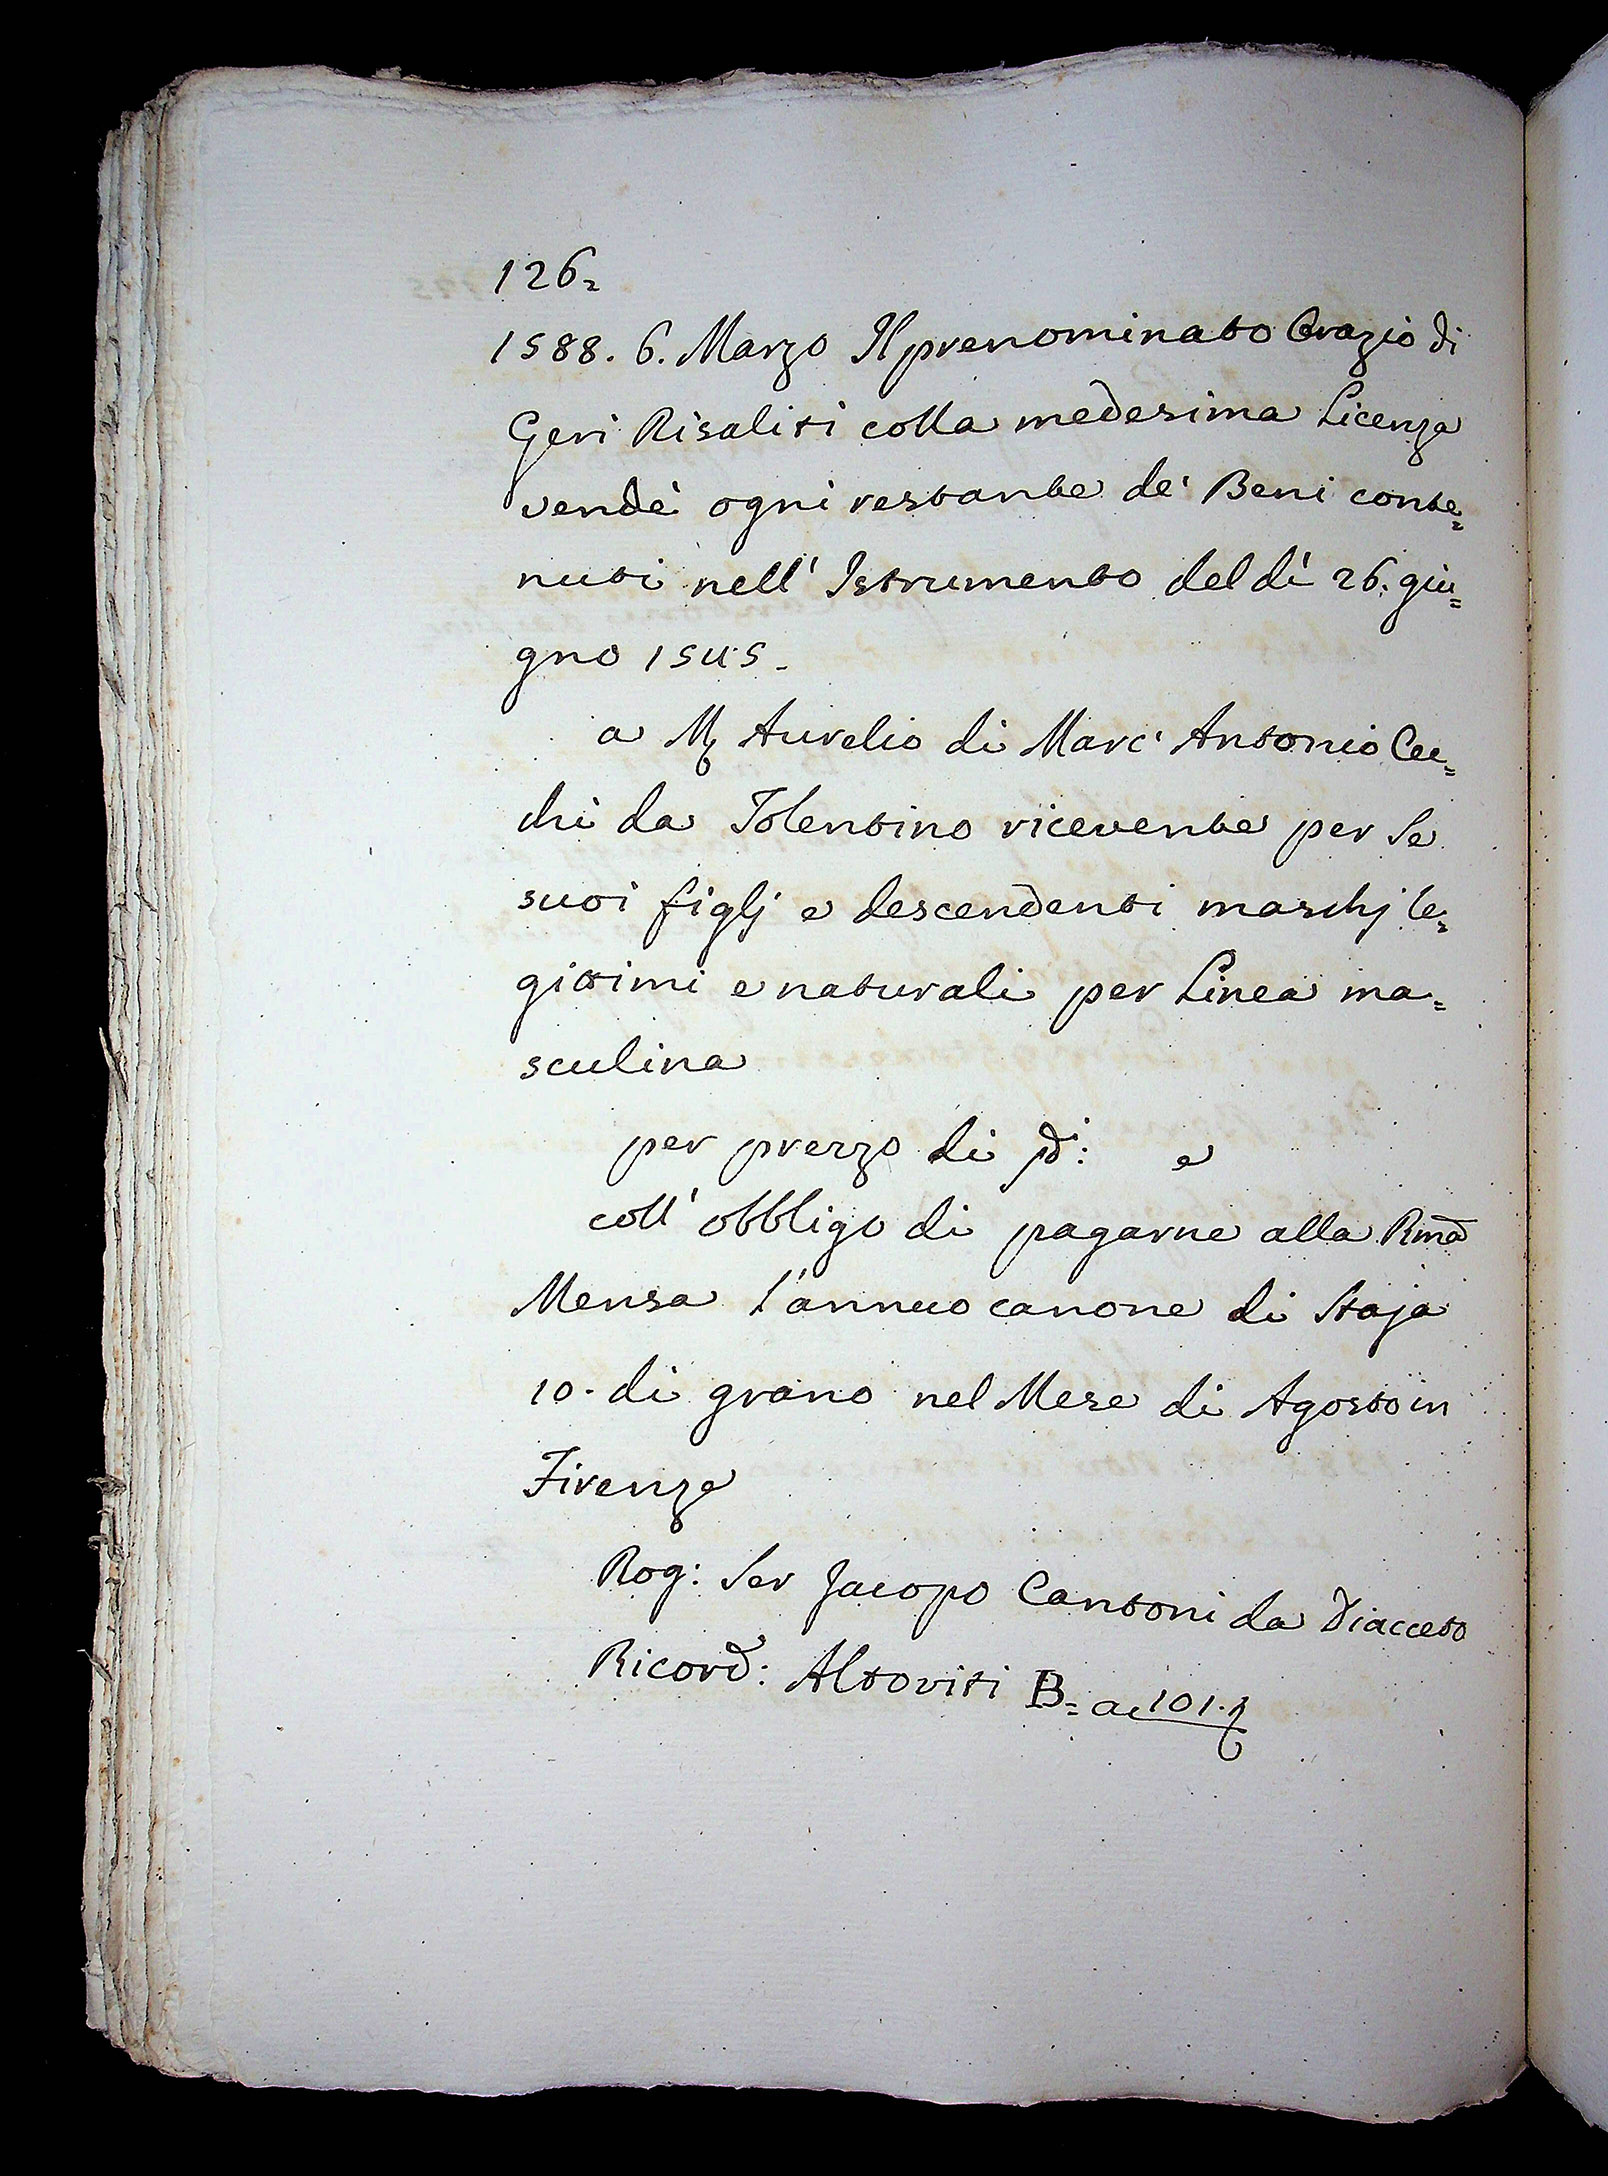 126=
1588. 6. Marzo Il prenominato Orazio di
Geri Risaliti colla medesima Licenza
vendè ogni restante de' Beni conte=
nuti nell' Istrumento del dì 26. giu=
gno 1545.
a M Aurelio di Marc' Antonio Cec=
chi da Tolentino ricevente per Se
suoi figlj e descendenti maschj le=
gitimi e naturali per Linea ma=
sculina
per prezzo di e
coll' obbligo di pagarne alla Rma
Mensa l'annuo canone di Staja
10. di grano nel Mese di Agosto in
Firenze
Rog: Ser Jacopo Cantoni da Diacceto
Ricord: Altoviti B= ac 101.